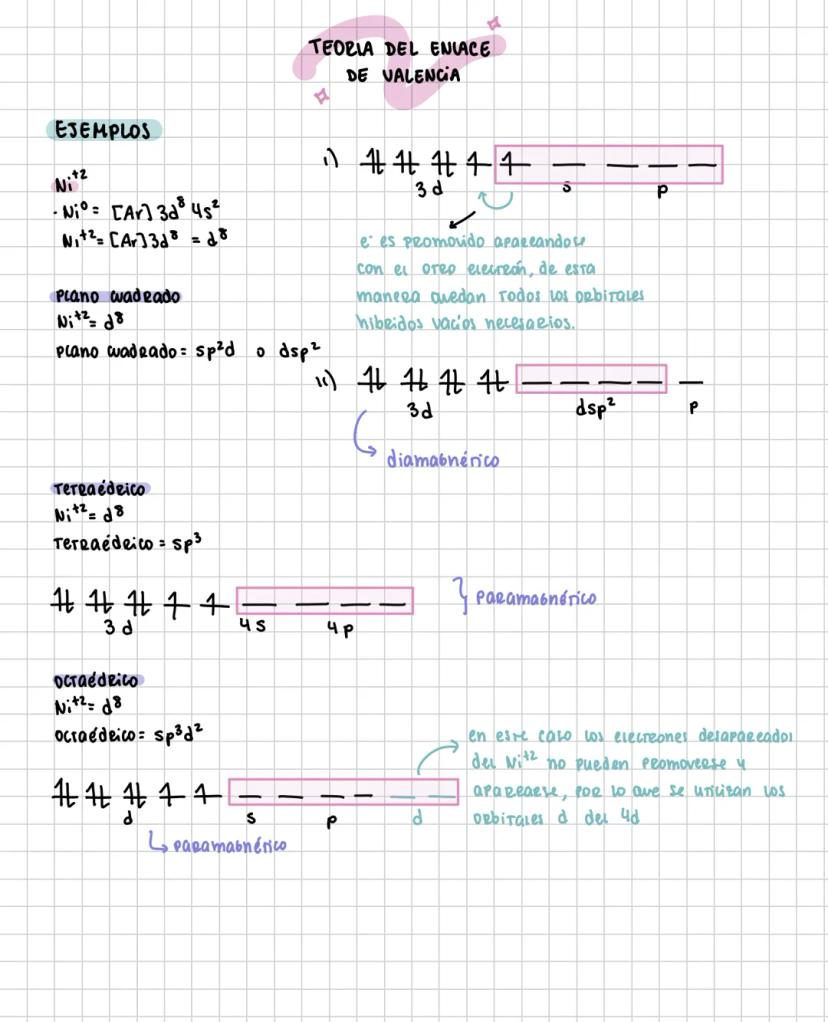 TEORIA DEL ENLACE
DE VALENCIA
EJEMPLOS
Ni⁺²
· Ni⁰ = [Ar] 3d⁸ 4s²
Ni⁺² = [Ar] 3d⁸ = d⁸
Plano cuadrado
Ni⁺² = d⁸
Plano cuadrado = sp²d o dsp²
i)
3d s p
e⁻ es promovido apareandose
con el otro electrón, de esta
manera quedan todos los orbitales
hibridos vacíos necesarios.
ii)
3d dsp² p
diamagnético
Tetraédrico
Ni⁺² = d⁸
Tetraédrico = sp³
3d 4s 4p
paramagnético
Octaédrico
Ni⁺² = d⁸
Octaédrico = sp³d²
d s p d
paramagnético
en este caso los electrones desapareados
del Ni⁺² no pueden promoverse y
aparearse, por lo que se utilizan los
orbitales d del 4d